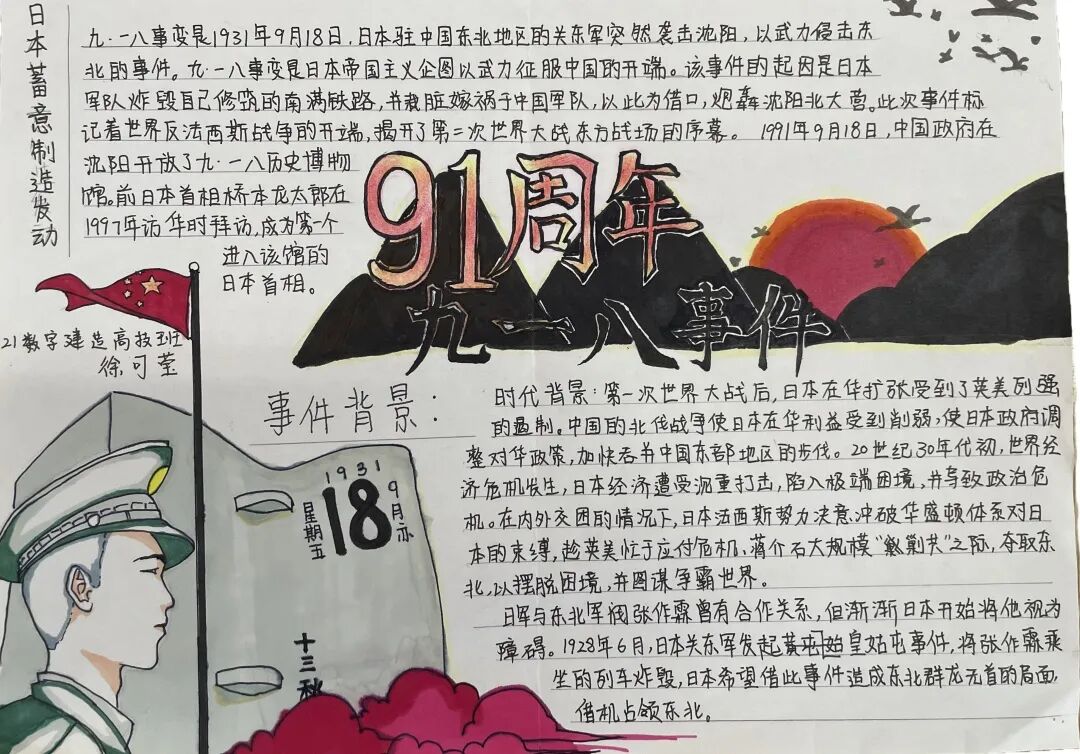 日本蓄意制造发动
九·一八事变是1931年9月18日,日本驻中国东北地区的关东军突然袭击沈阳,以武力侵击东
北的事件。九·一八事变是日本帝国主义企图以武力征服中国的开端。该事件的起因是日本
军队炸毁自己修筑的南满铁路,并栽脏嫁祸于中国军队,以此为借口,炮轰沈阳北大营。此次事件标
记着世界反法西斯战争的开端,揭开了第二次世界大战东方战场的序幕。1991年9月18日,中国政府在
沈阳开放了九·一八历史博物
馆。前日本首相桥本龙太郎在
1997年访华时拜访,成为第一个
进入该馆的
日本首相。
91周年
九一八事件
21数字建造高技班
徐可莹
事件背景:
时代背景:第一次世界大战后,日本在华扩张受到了英美列强
的遏制。中国的北伐战争使日本在华利益受到削弱,使日本政府调
整对华政策,加快吞并中国东部地区的步伐。20世纪30年代初,世界经
济危机发生,日本经济遭受沉重打击,陷入极端困境,并导致政治危
机。在内外交困的情况下,日本法西斯势力决意冲破华盛顿体系对日
本的束缚,趁英美忙于应付危机,蒋介石大规模“剿共”之际,夺取东
北,以摆脱困境,并图谋争霸世界。
日军与东北军阀张作霖曾有合作关系,但渐渐日本开始将他视为
障碍。1928年6月,日本关东军发起皇姑屯事件,将张作霖乘
坐的列车炸毁,日本希望借此事件造成东北群龙无首的局面,
借机占领东北。
1931
9月
18
星期五
十三秋